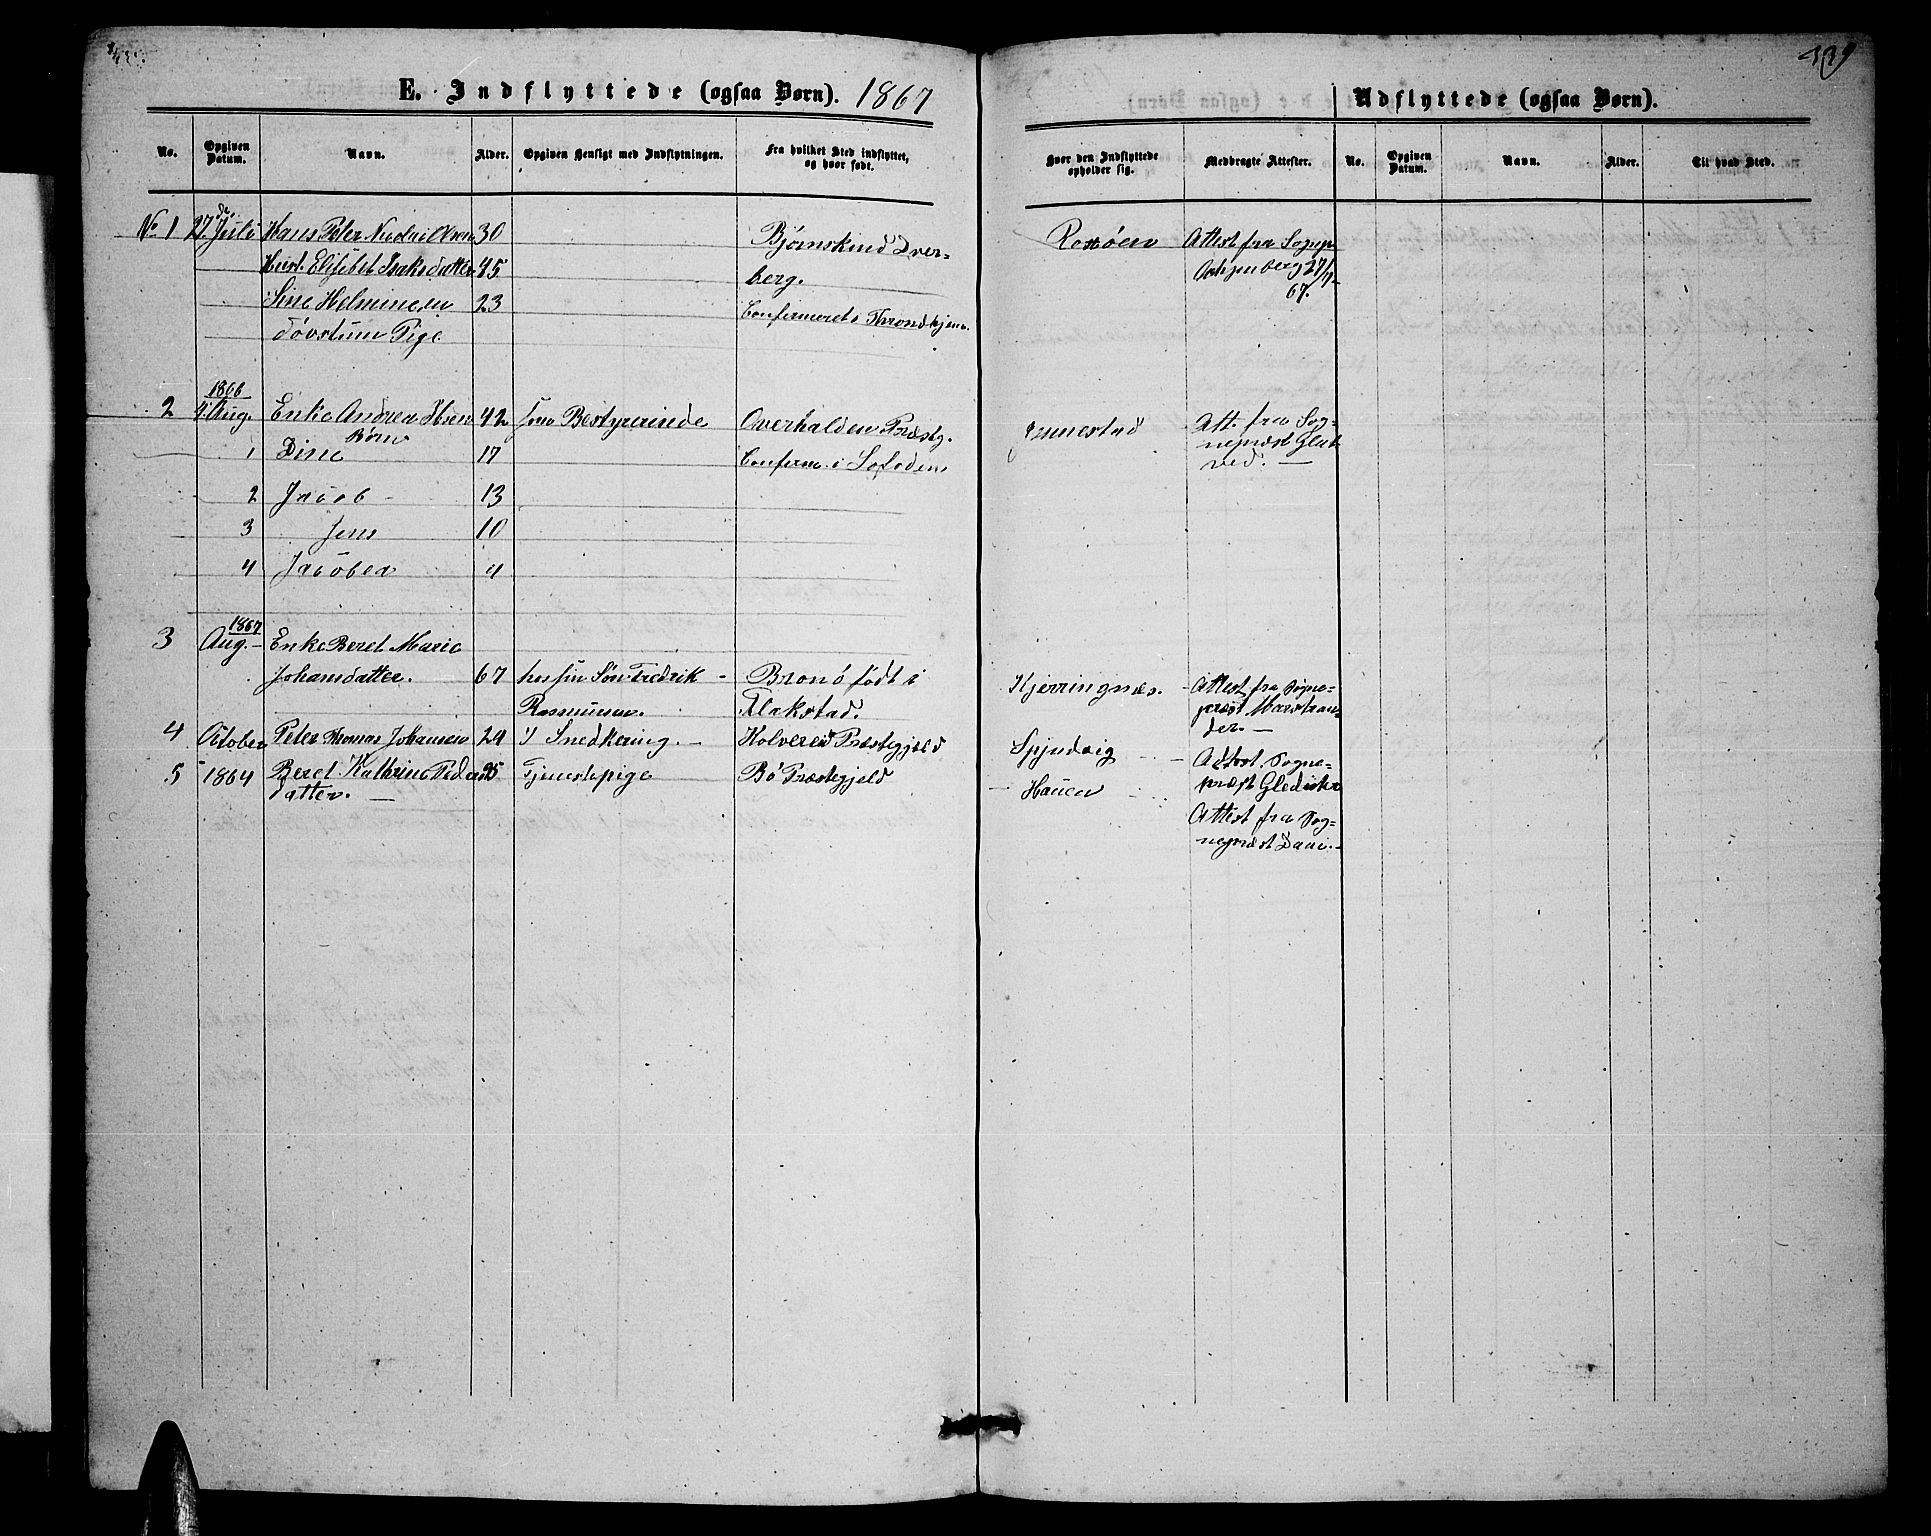 329
E. Indflyttede (ogsaa Børn). 1867
Udflyttede (ogsaa Børn).
No. Opgiven Datum. Navn. Alder. Opgiven Hensigt med Indflytningen. Fra hvilket Sted indflyttet, og hvor født.
Hvor den Indflyttede opholder sig. Medbragte Attester. No. Opgiven Datum. Navn. Alder. Til hvad Sted.
No 1 27de Juli Hans Peter Nicolai Olsen 30 Bjørnskind Dver= Attest fra Sognepr
Hust. Elisebet Isaksdatter 45 berg. 27/7
Sine Helmine en 23 Confirmeret i Throndhjem. 67.
døvstum Pige
1866
2 4 Aug. Enke Andrea Ibsen 42 som Bestyrerinde Overhalden Præstg. Jennestad Att. fra Sog=
Børn
1 Dine 17 Confirm. i Lofoden nepræst
2 Jacob - 13
3 Jens 10
4 Jacobea 4
1867
3 Aug. - Enke Beret Marie
Johansdatter. 67 hos sin Søn Fredrik - Bronø født i Kjerringnæs. - Attest fra Sogne=
Rasmussen. Flakstad. præst Marstran=
der. -
4 October Peter Thomas Johansen 29 I Snedkering. - Kolvereid Præstegjeld Spjudvig - Attest. Sogne=
præst Gleditsch
5 1864 Beret Kathrine Peders 25 Tjenestepige Bø Præstegjeld - Hauen - Attest fra Sog=
datter. - nepræst